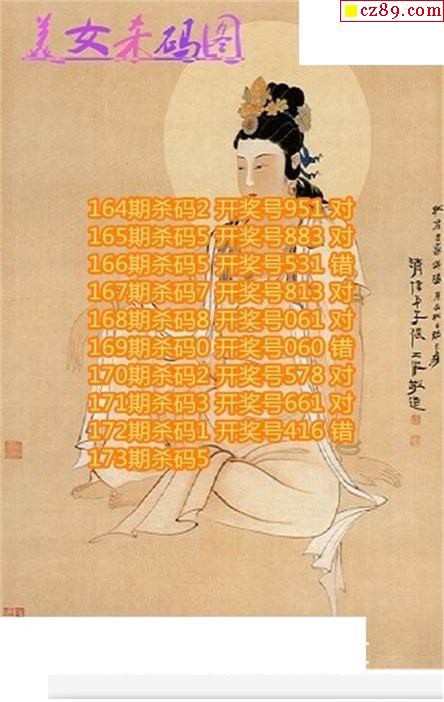 cz89.com
美女杀码图
164期杀码2 开奖号951 对
165期杀码5 开奖号883 对
166期杀码5 开奖号531 错
167期杀码7 开奖号813 对
168期杀码8 开奖号061 对
169期杀码0 开奖号060 错
170期杀码2 开奖号578 对
171期杀码3 开奖号661 对
172期杀码1 开奖号416 错
173期杀码5